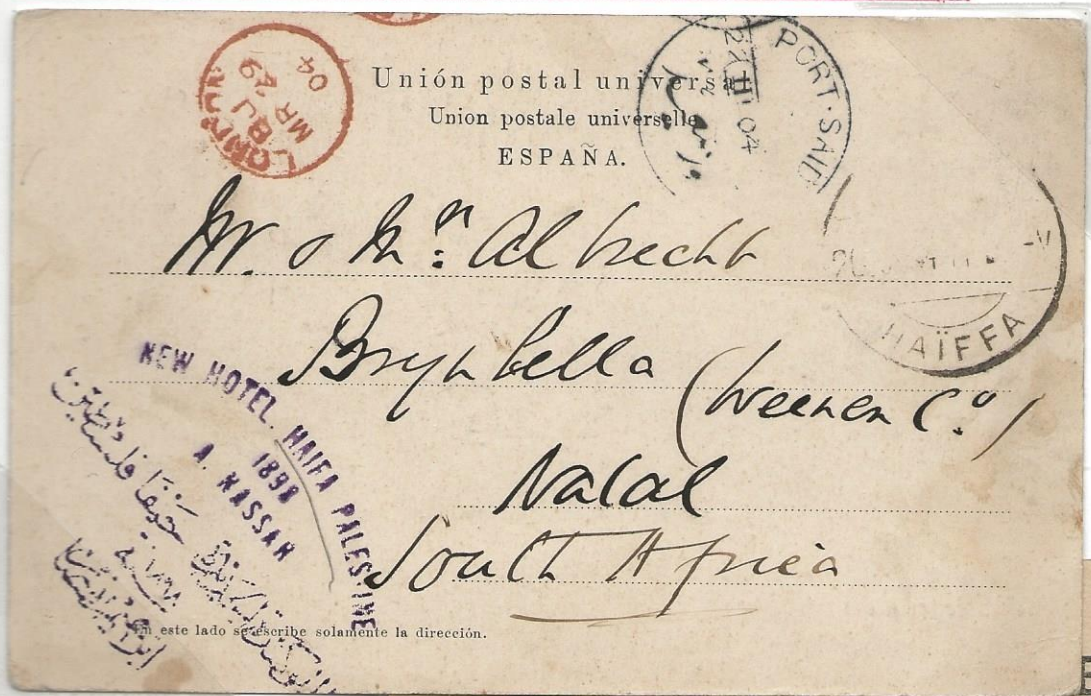 Unión postal universal
Union postale universelle
ESPAÑA.
LONDON
BJ
MR 29
04
PORT-SAID
22 III 04
HAÏFFA
Mr. o Mrs. Albrecht
Brynbella
(Weenen Co.)
Natal
South Africa
NEW HOTEL. HAIFA PALESTINE
1898
A. NASSAR
حيفا فلسطين
En este lado se escribe solamente la dirección.